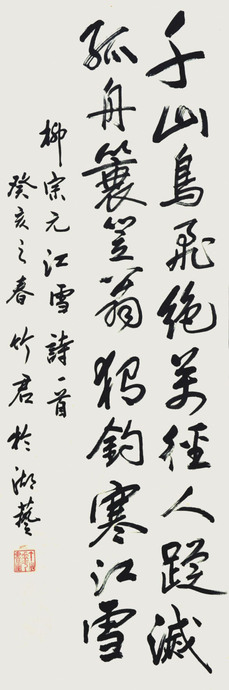 千山鳥飛絶萬徑人蹤滅
孤舟簑笠翁獨釣寒江雪
柳宗元江雪詩一首
癸亥之春竹君於湖藝